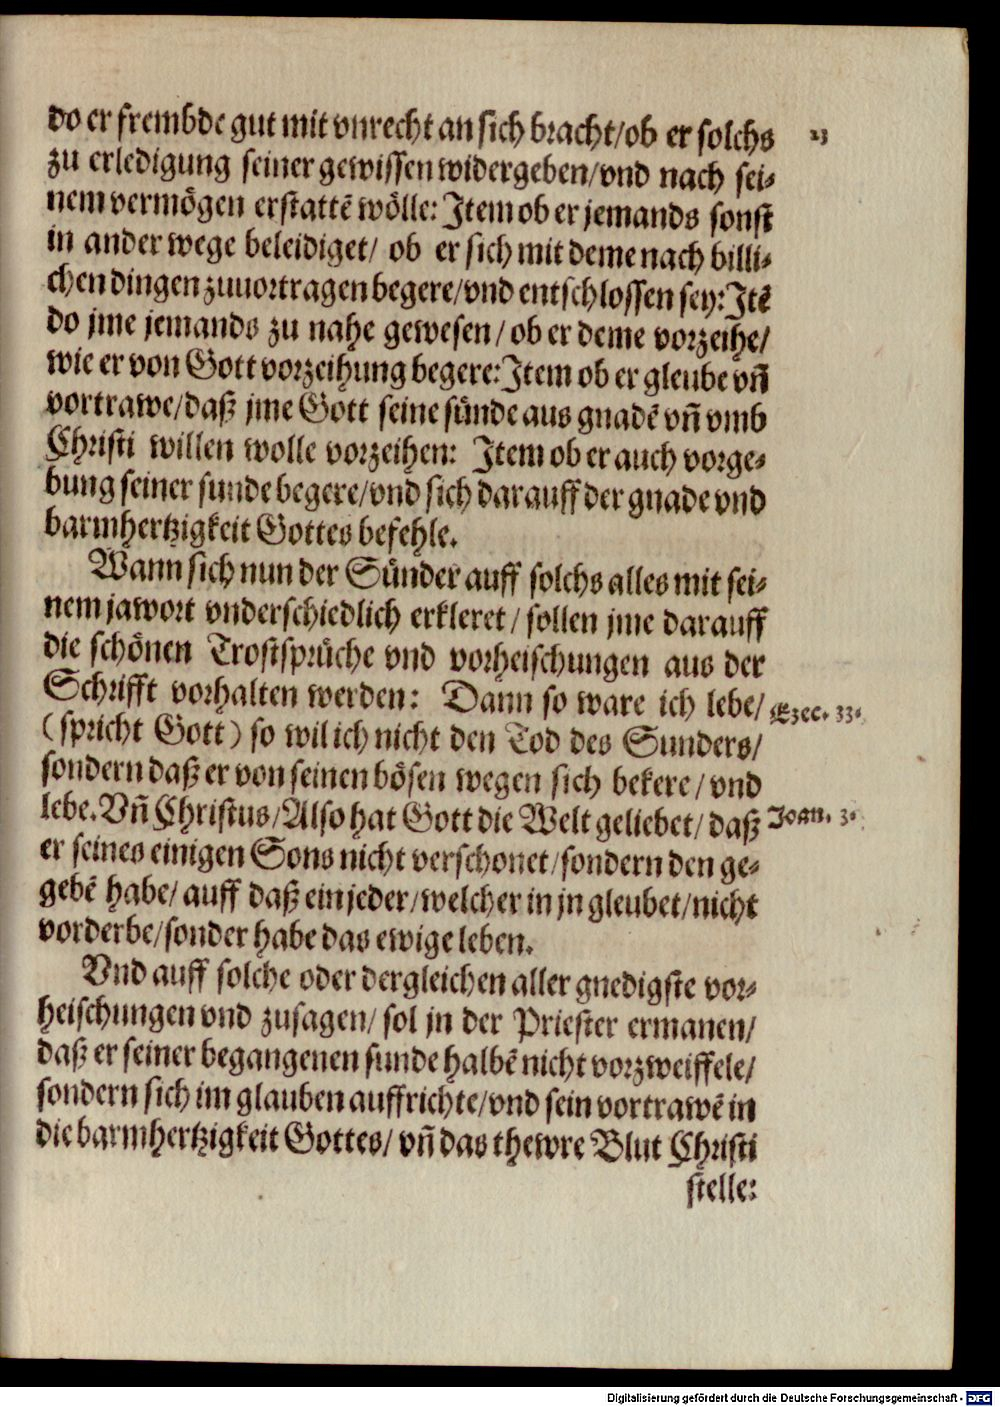 do er frembde gut mit vnrecht an sich bracht/ob er solchs
23
zu erledigung seiner gewissen widergeben/vnd nach sei-
nem vermögen erstattē wölle: Item ob er jemands sonst
in ander wege beleidiget/ ob er sich mit deme nach billi-
chen dingen zuuortragen begere/vnd entschlossen sey: Itē
do jme jemands zu nahe gewesen/ob er deme vorzeihe/
wie er von Gott vorzeihung begere: Item ob er gleube vn̄
vortrawe/daß jme Gott seine sünde aus gnadē vn̄ vmb
Christi willen wolle vorzeihen: Item ob er auch vorge-
bung seiner sunde begere/vnd sich darauff der gnade vnd
barmhertzigkeit Gottes befehle.
Wann sich nun der Sünder auff solchs alles mit sei-
nem jawort vnderschiedlich erkleret/ sollen jme darauff
die schönen Trostsprüche vnd vorheischungen aus der
Schrifft vorhalten werden: Dann so ware ich lebe/
Ezec. 33.
(spricht Gott) so wil ich nicht den Tod des Sunders/
sondern daß er von seinen bösen wegen sich bekere/vnd
lebe. Vn̄ Christus/Also hat Gott die Welt geliebet/ daß
Joan. 3.
er seines einigen Sons nicht verschonet/sondern den ge-
gebē habe/ auff daß ein jeder/welcher in jn gleubet/nicht
vorderbe/sonder habe das ewige leben.
Vnd auff solche oder dergleichen aller gnedigste vor-
heischungen vnd zusagen/ sol jn der Priester ermanen/
daß er seiner begangenen sunde halbē nicht vorzweiffele/
sondern sich im glauben auffrichte/vnd sein vortrawē in
die barmhertzigkeit Gottes/ vn̄ das thewre Blut Christi
stelle:
Digitalisierung gefördert durch die Deutsche Forschungsgemeinschaft - DFG